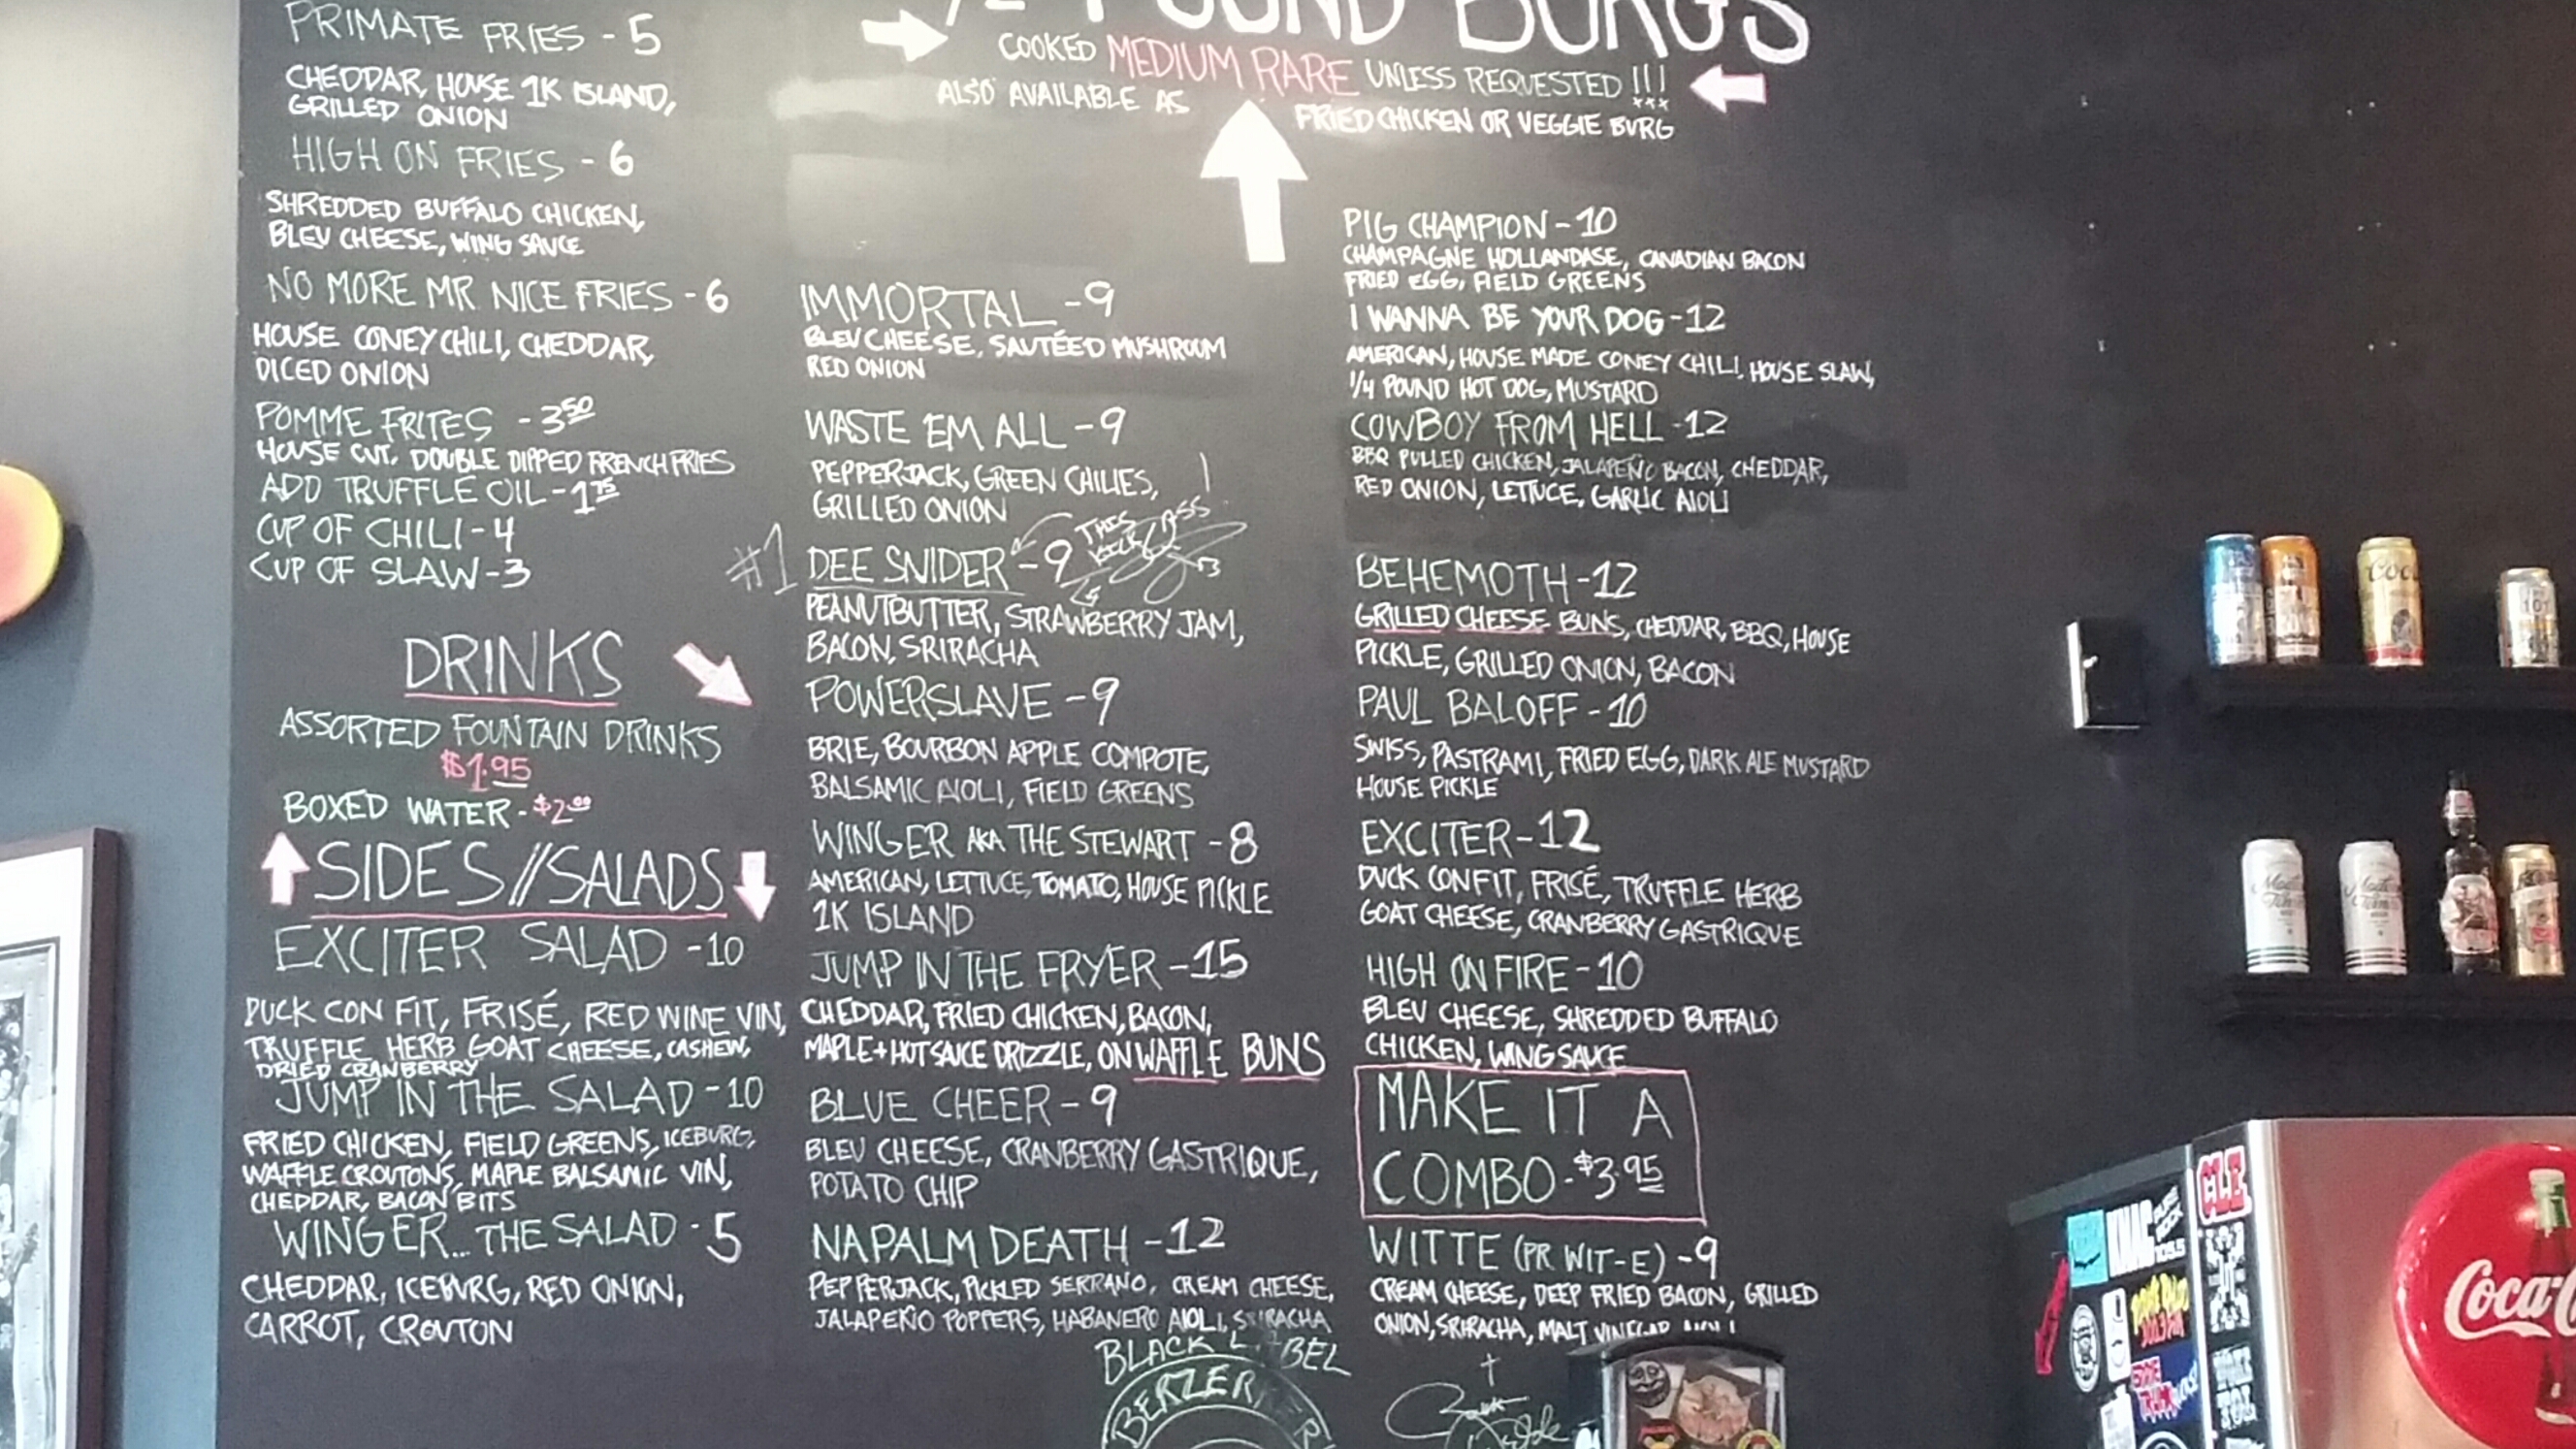 PRIMATE FRIES - 5
CHEDDAR, HOUSE 1K ISLAND,
GRILLED ONION
HIGH ON FRIES - 6
SHREDDED BUFFALO CHICKEN,
BLEU CHEESE, WING SAUCE
NO MORE MR. NICE FRIES - 6
HOUSE CONEY CHILI, CHEDDAR,
DICED ONION
POMME FRITES - 3 50
HOUSE CUT, DOUBLE DIPPED FRENCH FRIES
ADD TRUFFLE OIL - 1 75
CUP OF CHILI - 4
CUP OF SLAW - 3
DRINKS
ASSORTED FOUNTAIN DRINKS
$1.95
BOXED WATER - $2.00
SIDES//SALADS
EXCITER SALAD - 10
DUCK CON FIT, FRISÉ, RED WINE VIN,
TRUFFLE HERB GOAT CHEESE, CASHEW,
DRIED CRANBERRY
JUMP IN THE SALAD - 10
FRIED CHICKEN, FIELD GREENS, ICEBURG,
WAFFLE CROUTONS, MAPLE BALSAMIC VIN,
CHEDDAR, BACON BITS
WINGER... THE SALAD - 5
CHEDDAR, ICEBURG, RED ONION,
CARROT, CROUTON
1/2 POUND BURGS
COOKED MEDIUM RARE UNLESS REQUESTED !!!
ALSO AVAILABLE AS FRIED CHICKEN OR VEGGIE BURG
IMMORTAL - 9
BLEU CHEESE, SAUTÉED MUSHROOM
RED ONION
WASTE EM ALL - 9
PEPPERJACK, GREEN CHILIES,
GRILLED ONION
#1 DEE SNIDER - 9
THIS
KICKS ASS
PEANUTBUTTER, STRAWBERRY JAM,
BACON, SRIRACHA
POWERSLAVE - 9
BRIE, BOURBON APPLE COMPOTE,
BALSAMIC AIOLI, FIELD GREENS
WINGER AKA THE STEWART - 8
AMERICAN, LETTUCE, TOMATO, HOUSE PICKLE
1K ISLAND
JUMP IN THE FRYER - 15
CHEDDAR, FRIED CHICKEN, BACON,
MAPLE + HOT SAUCE DRIZZLE, ON WAFFLE BUNS
BLUE CHEER - 9
BLEU CHEESE, CRANBERRY GASTRIQUE,
POTATO CHIP
NAPALM DEATH - 12
PEPPERJACK, PICKLED SERRANO, CREAM CHEESE,
JALAPEÑO POPPERS, HABANERO AIOLI, SRIRACHA
BLACK LABEL
PIG CHAMPION - 10
CHAMPAGNE HOLLANDASE, CANADIAN BACON
FRIED EGG, FIELD GREENS
I WANNA BE YOUR DOG - 12
AMERICAN, HOUSE MADE CONEY CHILI, HOUSE SLAW,
1/4 POUND HOT DOG, MUSTARD
COWBOY FROM HELL - 12
BBQ PULLED CHICKEN, JALAPEÑO BACON, CHEDDAR,
RED ONION, LETTUCE, GARLIC AIOLI
BEHEMOTH - 12
GRILLED CHEESE BUNS, CHEDDAR, BBQ, HOUSE
PICKLE, GRILLED ONION, BACON
PAUL BALOFF - 10
SWISS, PASTRAMI, FRIED EGG, DARK ALE MUSTARD
HOUSE PICKLE
EXCITER - 12
DUCK CONFIT, FRISÉ, TRUFFLE HERB
GOAT CHEESE, CRANBERRY GASTRIQUE
HIGH ON FIRE - 10
BLEU CHEESE, SHREDDED BUFFALO
CHICKEN, WING SAUCE
MAKE IT A
COMBO - $3.95
WITTE (PR WIT-E) - 9
CREAM CHEESE, DEEP FRIED BACON, GRILLED
ONION, SRIRACHA, MALT VINEGAR AIOLI
CLE
Coca-C